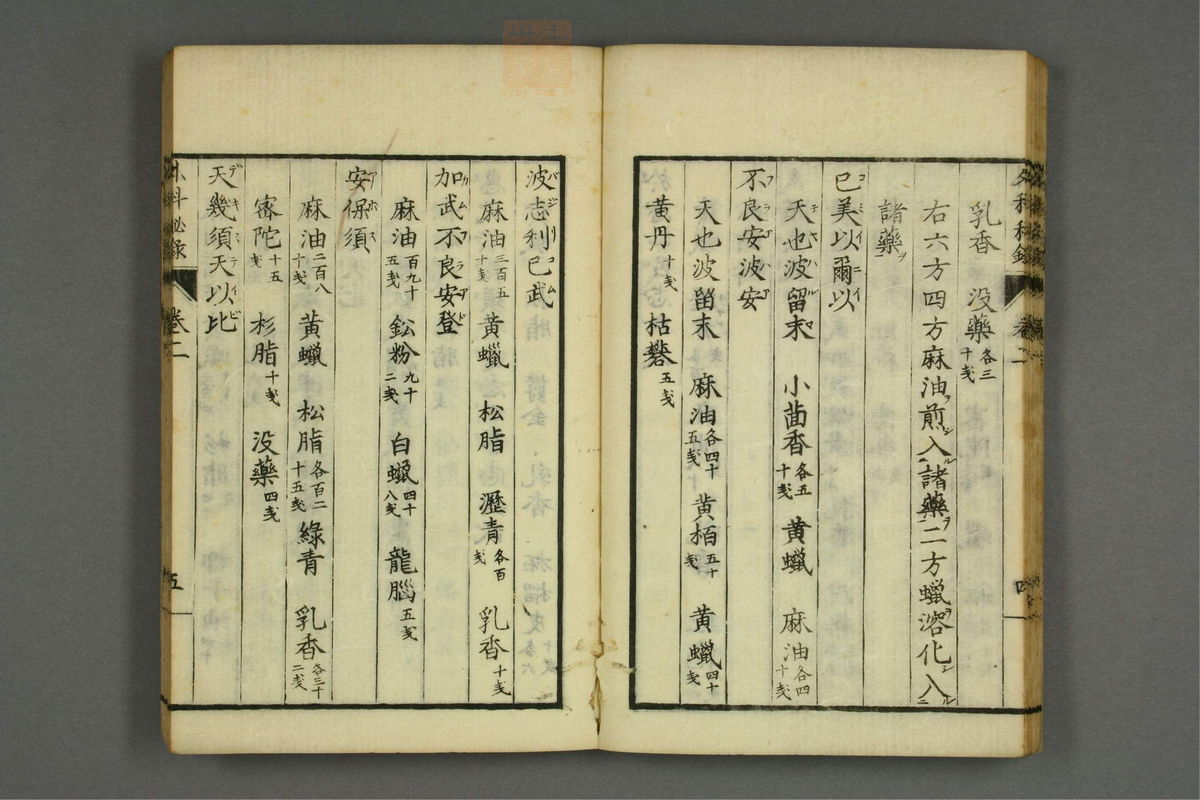 外科秘録 卷二 四
乳香 没藥各三十戔
右六方四方麻油煎入諸藥ヲ二方蠟ヲ溶化シ入ル
諸藥ヲ
巳美以爾以
天也波留末 小茴香各五十戔 黄蠟 麻油各四十戔
不良安波安
天也波留末 麻油各四十五戔 黄栢五十戔 黄蠟四十戔
黄丹十戔 枯礬五戔
波志利巳武
麻油三百五十戔 黄蠟 松脂 瀝青各百戔 乳香十戔
加武不良安登
麻油百九十五戔 鈆粉九十二戔 白蠟四十八戔 龍腦五戔
安保須
麻油二百八十戔 黄蠟 松脂各百二十五戔 綠青 乳香各三十二戔
密陀十五戔 杉脂十戔 没藥四戔
天幾須天以比
外科秘録 卷二 五